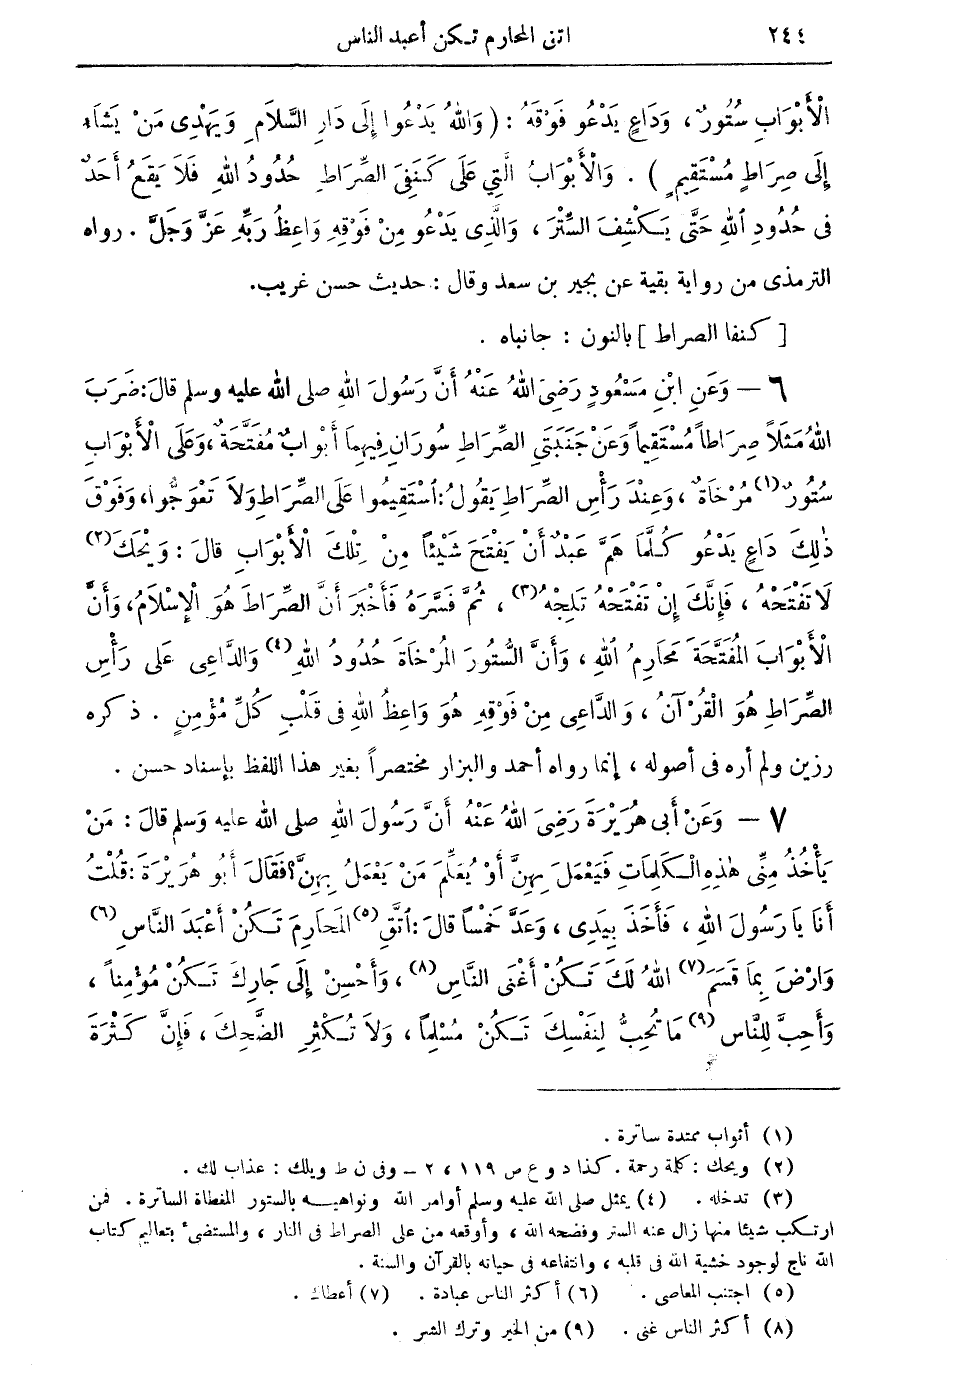 ٢٤٤ اتق المحارم تكن أعبد الناس
الْأَبْوَابِ سُتُورٌ، وَدَاعٍ يَدْعُو فَوْقَهُ : (وَاللهُ يَدْعُوا إِلَى دَارِ السَّلَامِ وَيَهْدِى مَنْ يَشَاءُ
إِلَى صِرَاطٍ مُسْتَقِيمٍ) . وَالْأَبْوَابُ الَّتِي عَلَى كَنَفَىِ الصِّرَاطِ حُدُودُ اللهِ فَلَا يَقَعُ أَحَدٌ
فِى حُدُودِ اللهِ حَتَّى يَكْشِفَ السِّتْرَ ، وَالَّذِى يَدْعُو مِنْ فَوْقِهِ وَاعِظُ رَبِّهِ عَزَّ وَجَلَّ . رواه
الترمذى من رواية بقية عن بجير بن سعد وقال : حديث حسن غريب.
[ كنفا الصراط ] بالنون : جانباه .
٦ — وَعَنِ ابْنِ مَسْعُودٍ رَضِىَ اللهُ عَنْهُ أَنَّ رَسُولَ اللهِ صلى الله عليه وسلم قالَ: ضَرَبَ
اللهُ مَثَلاً صِرَاطاً مُسْتَقِيماً وَعَنْ جَنَبَتَىِ الصِّرَاطِ سُورَانِ فِيهِمَا أَبْوَابٌ مُفَتَّحَةٌ، وَعَلَى الْأَبْوَابِ
سُتُورٌ(١) مُرْخَاةٌ ، وَعِنْدَ رَأْسِ الصِّرَاطِ يَقُولُ: اسْتَقِيمُوا عَلَى الصِّرَاطِ وَلَا تَعْوَجُّوا، وَفَوْقَ
ذٰلِكَ دَاعٍ يَدْعُو كُلَّمَا هَمَّ عَبْدٌ أَنْ يَفْتَحَ شَيْئاً مِنْ تِلْكَ الْأَبْوَابِ قالَ : وَيْحَكَ(٢)
لَا تَفْتَحْهُ ، فَإِنَّكَ إِنْ تَفْتَحْهُ تَلِجْهُ(٣) ، ثُمَّ فَسَّرَهُ فَأَخْبَرَ أَنَّ الصِّرَاطَ هُوَ الْإِسْلَامُ، وَأَنَّ
الْأَبْوَابَ المُفَتَّحَةَ مَحَارِمُ اللهِ ، وَأَنَّ السُّتُورَ المُرْخَاةَ حُدُودُ اللهِ(٤) وَالدَّاعِى عَلَى رَأْسِ
الصِّرَاطِ هُوَ الْقُرْآنُ ، وَالدَّاعِى مِنْ فَوْقِهِ هُوَ وَاعِظُ اللهِ فِى قَلْبِ كُلِّ مُؤْمِنٍ . ذكره
رزين ولم أره فى أصوله ، إنما رواه أحمد والبزار مختصراً بغير هذا اللفظ بإسناد حسن .
٧ — وَعَنْ أَبِى هُرَيْرَةَ رَضِىَ اللهُ عَنْهُ أَنَّ رَسُولَ اللهِ صلى الله عليه وَسلم قالَ : مَنْ
يَأْخُذُ مِنِّى هٰذِهِ الْكَلِمَاتِ فَيَعْمَلَ بِهِنَّ أَوْ يُعَلِّمَ مَنْ يَعْمَلُ بِهِنَّ؟ فَقَالَ أَبُو هُرَيْرَةَ : قُلْتُ
أَنَا يَا رَسُولَ اللهِ ، فَأَخَذَ بِيَدِى ، وَعَدَّ خَمْساً قالَ : اتَّقِ(٥) المَحَارِمَ تَكُنْ أَعْبَدَ النَّاسِ(٦)
وَارْضَ بِمَا قَسَمَ(٧) اللهُ لَكَ تَكُنْ أَغْنَى النَّاسِ(٨) ، وَأَحْسِنْ إِلَى جَارِكَ تَكُنْ مُؤْمِناً ،
وَأَحِبَّ لِلنَّاسِ(٩) مَا تُحِبُّ لِنَفْسِكَ تَكُنْ مُسْلِماً ، وَلَا تُكْثِرِ الضَّحِكَ ، فَإِنَّ كَثْرَةَ
(١) أثواب ممتدة ساترة .
(٢) ويحك : كلمة رحمة . كذا د و ع ص ١١٩ ، ٢ – وفى ن ط ويلك : عذاب لك .
(٣) تدخله . (٤) يمثل صلى الله عليه وسلم أوامر الله ونواهيه بالستور المغطاة الساترة . فمن
ارتكب شيئا منها زال عنه الستر وفضحه الله ، وأوقعه من على الصراط فى النار ، والمستضىء بتعاليم كتاب
الله ناج لوجود خشية الله فى قلبه ، وانتفاعه فى حياته بالقرآن والسنة .
(٥) اجتنب المعاصى . (٦) أكثر الناس عبادة . (٧) أعطاك .
(٨) أكثر الناس غنى . (٩) من الخير وترك الشر .